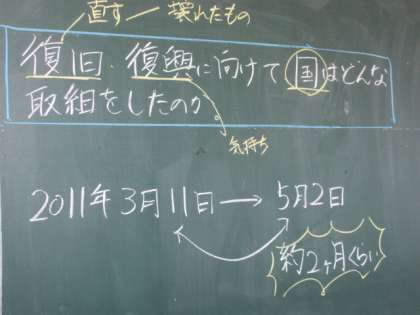 直す — 壊れたもの
復旧・復興に向けて国はどんな
取組をしたのか
気持ち
2011年3月11日 → 5月2日
約2ヶ月くらい